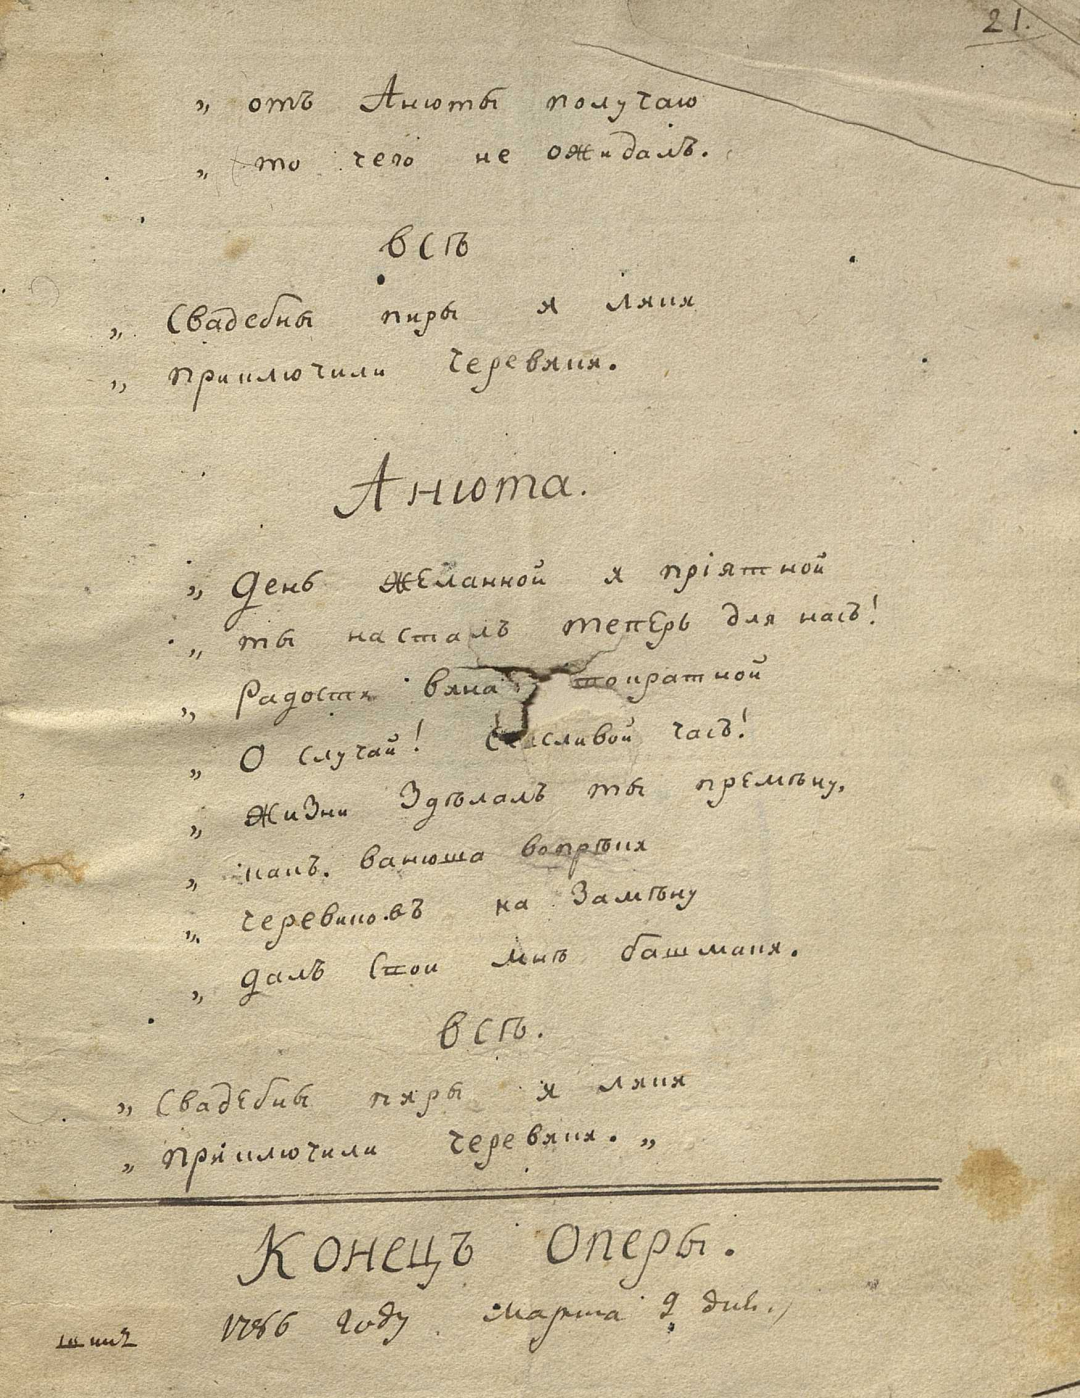 21.
„ отъ Анюты получаю
„ то чего не ожидалъ.
всѣ
„ Свадебны пиры я ляпя
„ приключили черевяпя.
Анюта.
„ День желанной я прiятной
„ ты насталъ теперь для насъ!
„ Радостя вяна стократной
„ О случай! Счасливой часъ!
„ Жизни Здѣлалъ ты премѣну,
„ какъ. ванюша вопрѣкя
„ черевиковъ на Замѣну
„ далъ Свои мнѣ башмакя.
всѣ.
„ Свадебны пяры я ляпя
„ приключили черевякя. „
Конецъ Оперы.
1786 году марта 9 дня.